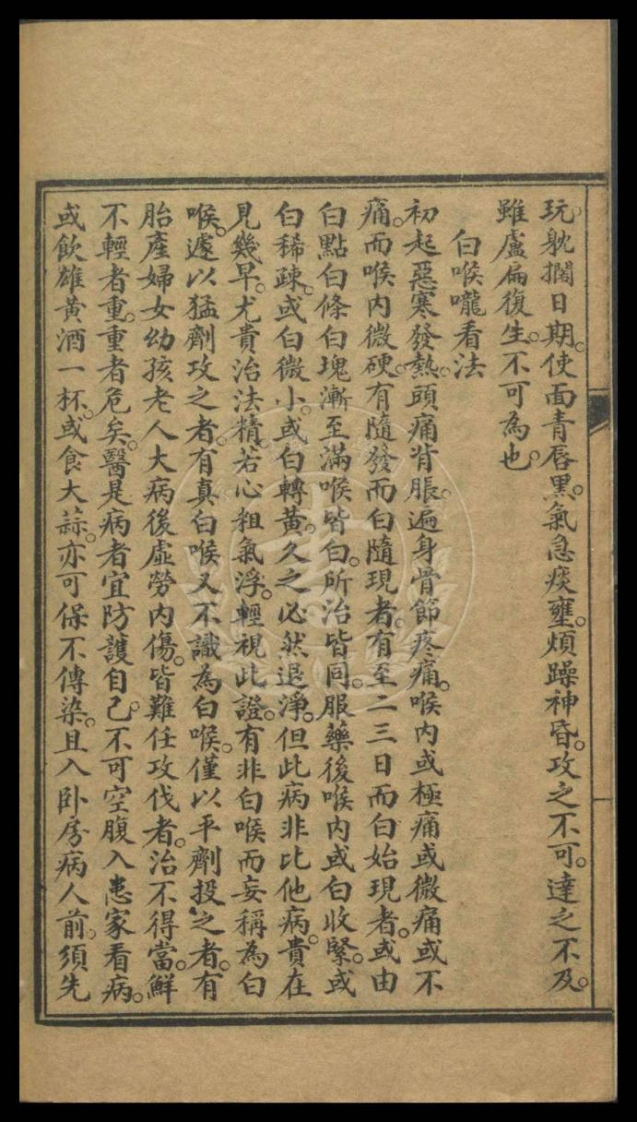 玩。躭擱日期。使面青唇黑。氣急痰壅。煩躁神昏。攻之不可。達之不及。
雖盧扁復生。不可為也。
白喉嚨看法
初起惡寒發熱。頭痛背脹。遍身骨節疼痛。喉内或極痛或微痛或不
痛。而喉内微硬。有隨發而白隨現者。有至二三日而白始現者。或由
白點白條白塊漸至滿喉皆白。所治皆同。服藥後喉内或白收緊。或
白稀疎。或白微小。或白轉黃。久之必然退淨。但此病非比他病。貴在
見幾早。尤貴治法精。若心粗氣浮。輕視此證。有非白喉而妄稱為白
喉。遽以猛劑攻之者。有真白喉又不識為白喉。僅以平劑投之者。有
胎產婦女幼孩老人大病後虛勞内傷。皆難任攻伐者。治不得當。鮮
不輕者重。重者危矣。醫是病者宜防護自己。不可空腹入患家看病。
或飲雄黃酒一杯。或食大蒜。亦可保不傳染。且入卧房病人前。須先